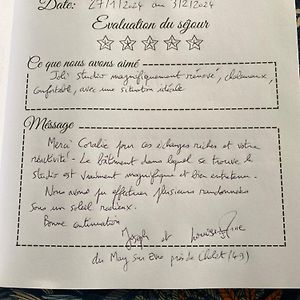 Date: 27/1/2024 au 3/2/2024
Evaluation du séjour
Ce que nous avons aimé
Joli studio magnifiquement rénové, chaleureux,
confortable, avec une situation idéale
Méssage
Merci Coralie pour ces échanges riches et votre
réactivité - Le bâtiment dans lequel se trouve le
studio est vraiment magnifique et bien entretenu.
Nous avons pu effectuer plusieurs randonnées
sous un soleil radieux.
Bonne continuation
Joseph et
du May sur Evre près de Cholet (49)